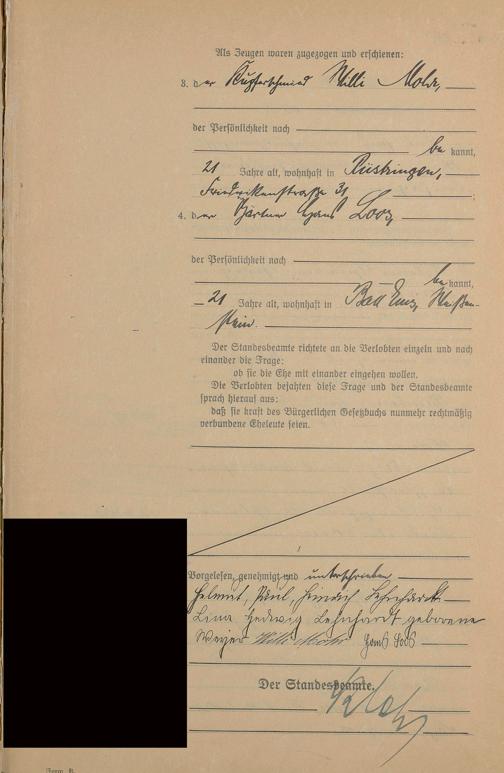 Als Zeugen waren zugezogen und erschienen:
3. der Kupferschmied Willi Mohr,
der Persönlichkeit nach
be kannt,
21 Jahre alt, wohnhaft in Rüstringen,
Friederikenstraße 31 ;
4. der Gärtner Hans Loos,
der Persönlichkeit nach
be kannt,
21 Jahre alt, wohnhaft in Bad Ems, Weißen-
stein.
Der Standesbeamte richtete an die Verlobten einzeln und nach
einander die Frage:
ob sie die Ehe mit einander eingehen wollen.
Die Verlobten bejahten diese Frage und der Standesbeamte
sprach hierauf aus:
daß sie kraft des Bürgerlichen Gesetzbuchs nunmehr rechtmäßig
verbundene Eheleute seien.
Vorgelesen, genehmigt und unterschrieben
Helmut, Paul, Heinrich Lehnhardt
Lina Hedwig Lehnhardt geborene
Weyer Willi Mohr Hans Loos
Der Standesbeamte.
Form. B.